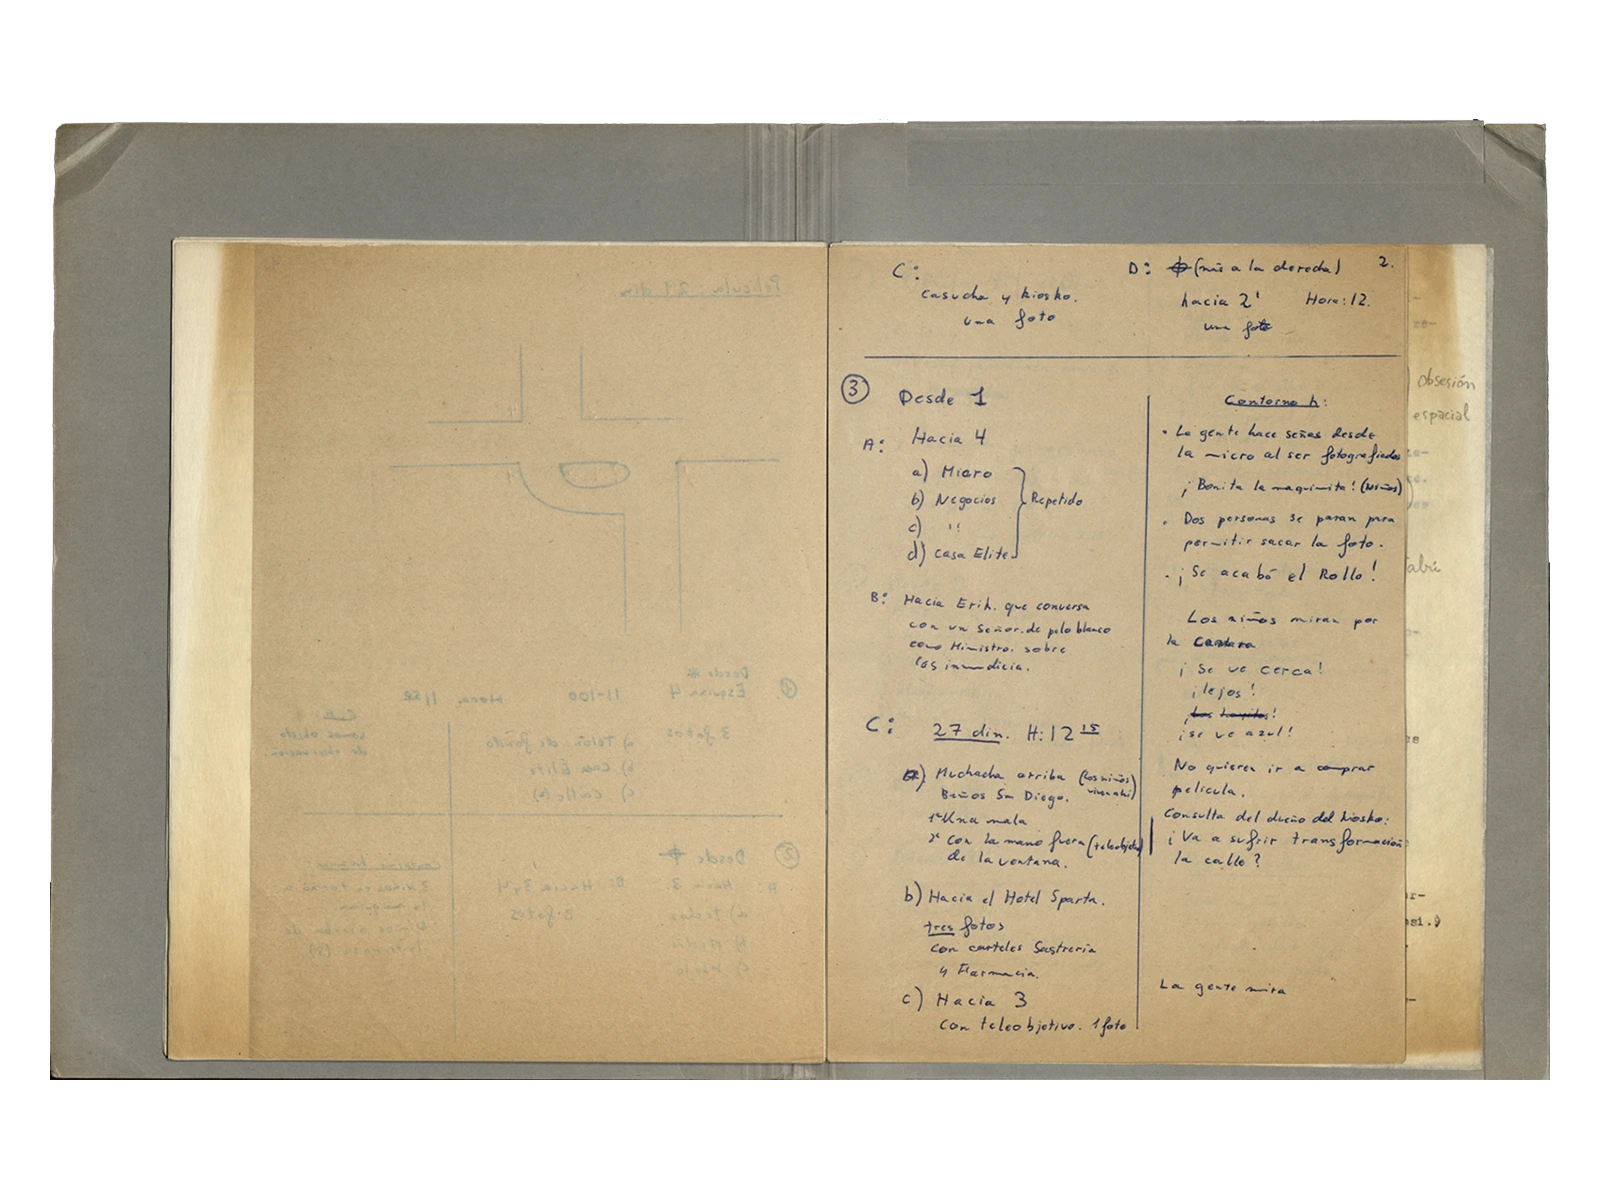 C:
casucha y kiosko.
una foto
D: (más a la derecha)
hacia 2' Hora: 12.
una foto
2.
3 Desde 1
A: Hacia 4
a) Micro
b) Negocios
c) "
d) Casa Elite
Repetido
B: Hacia Erih. que conversa
con un Señor. de pelo blanco
como Ministro. sobre
las inmundicia.
C: 27 din. H: 12 15
a) Muchacha arriba (los niños
viven ahí)
Baños San Diego.
1ª Una mala
2ª con la mano fuera (teleobjetivo)
de la ventana.
b) Hacia el Hotel Sparta.
tres fotos
con carteles Sastrería
y Farmacia.
c) Hacia 3
con teleobjetivo. 1 foto
Contorno h:
• La gente hace señas desde
la micro al ser fotografiados
¡Bonita la maquinita! (niños)
• Dos personas se paran para
permitir sacar la foto.
• ¡Se acabó el Rollo!
Los niños miran por
la camara
¡Se ve cerca!
¡lejos!
¡se ve azul!
No quieren ir a comprar
película.
Consulta del dueño del kiosko:
¿Va a sufrir transformación
la calle?
La gente mira
obsesión
espacial
Película: 27 din
1 Desde *
Esquina 4 11-100 Hora. 11 50
3 fotos
a) Telón de fondo
b) Casa Elite
c) Calle (s)
2 Desde
A: Hacia 3.
a) techos
B: Hacia 3 y 4
3 fotos